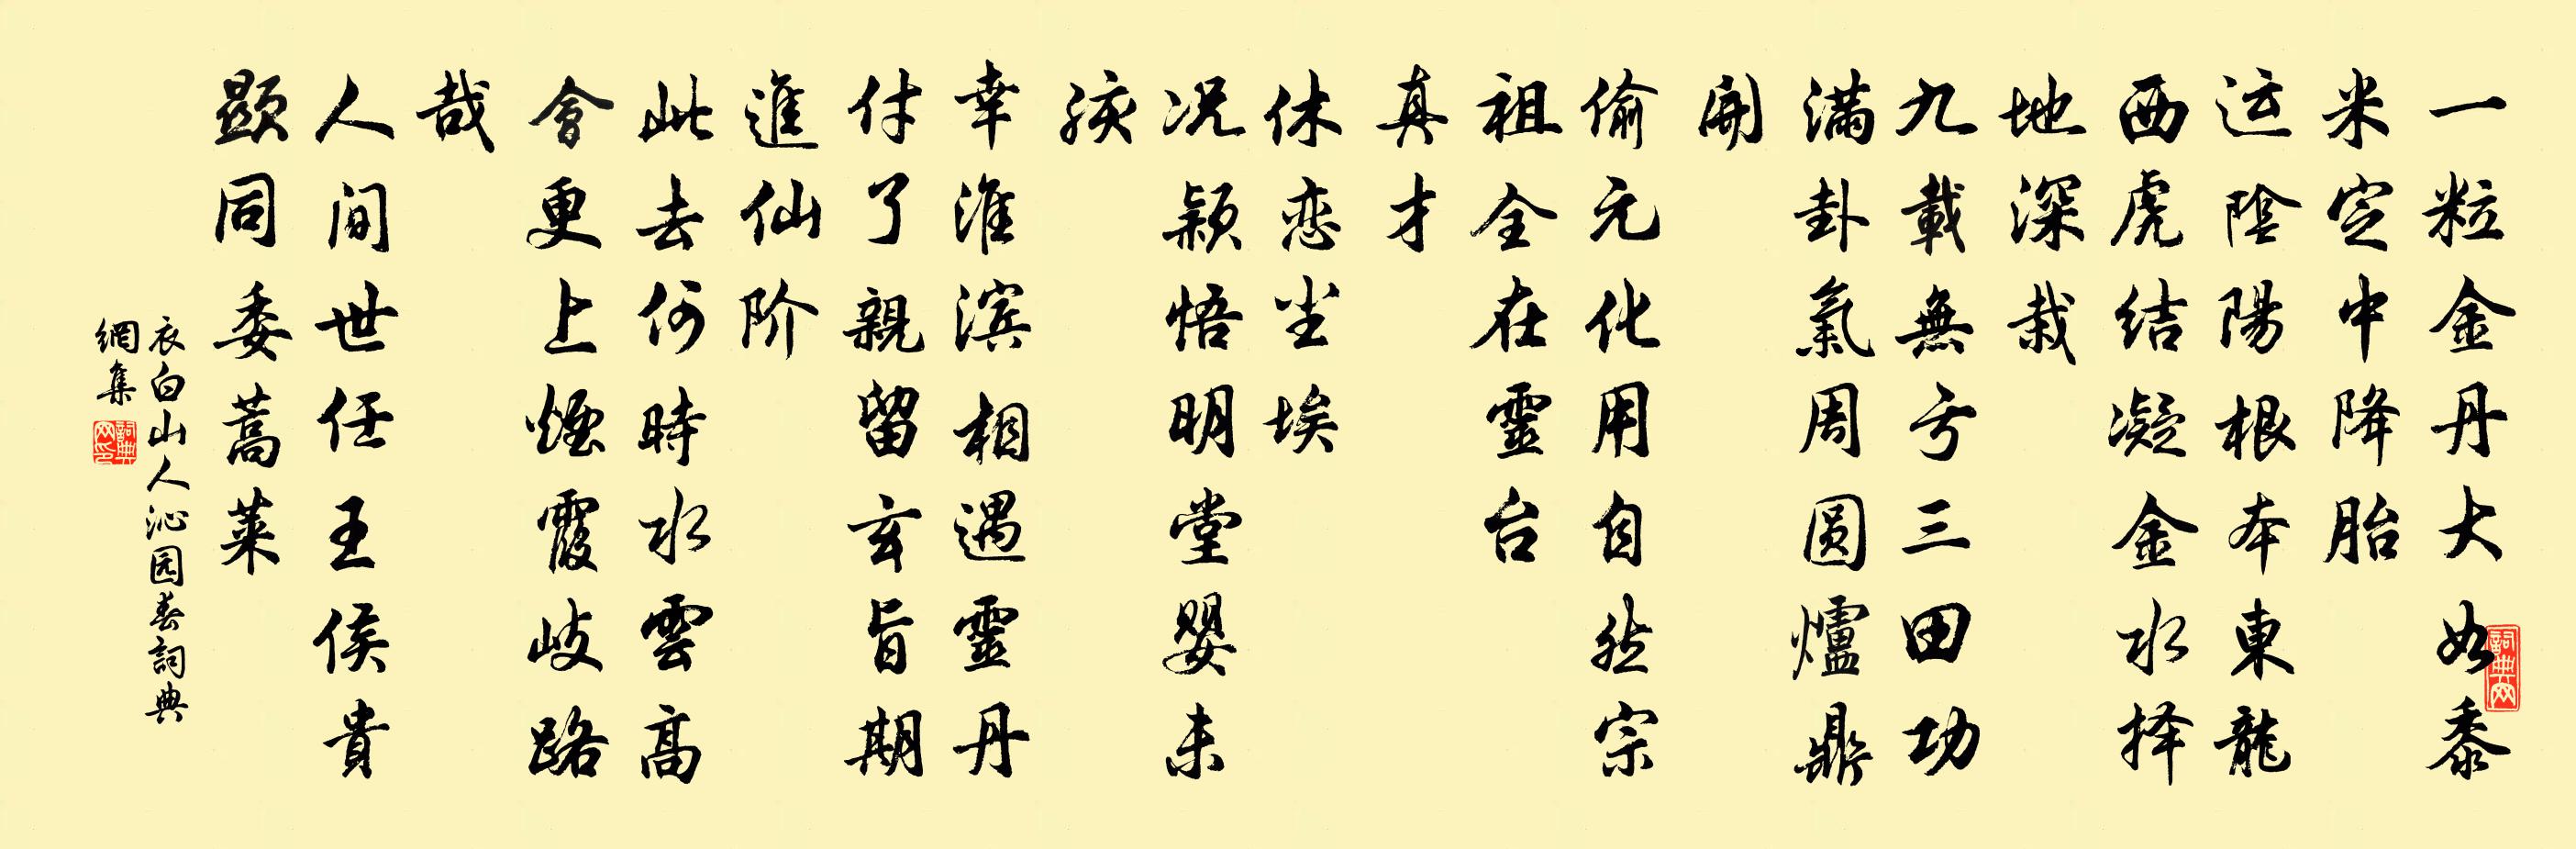 一粒金丹大如黍
米定中降胎
运陰陽根本東龍
西虎结凝金水择
地深栽
九載無亏三田功
满卦氣周圆爐鼎
開
偷元化用自然宗
祖全在靈台
真才
休恋尘埃
况颖悟明堂婴未
孩
幸淮滨相遇靈丹
付了親留玄旨期
進仙阶
此去何時水雲高
會更上煙霞歧路
哉
人间世任王侯貴
顕同委蒿莱
衣白山人沁园春詞典
網集
詞典
网
詞典网